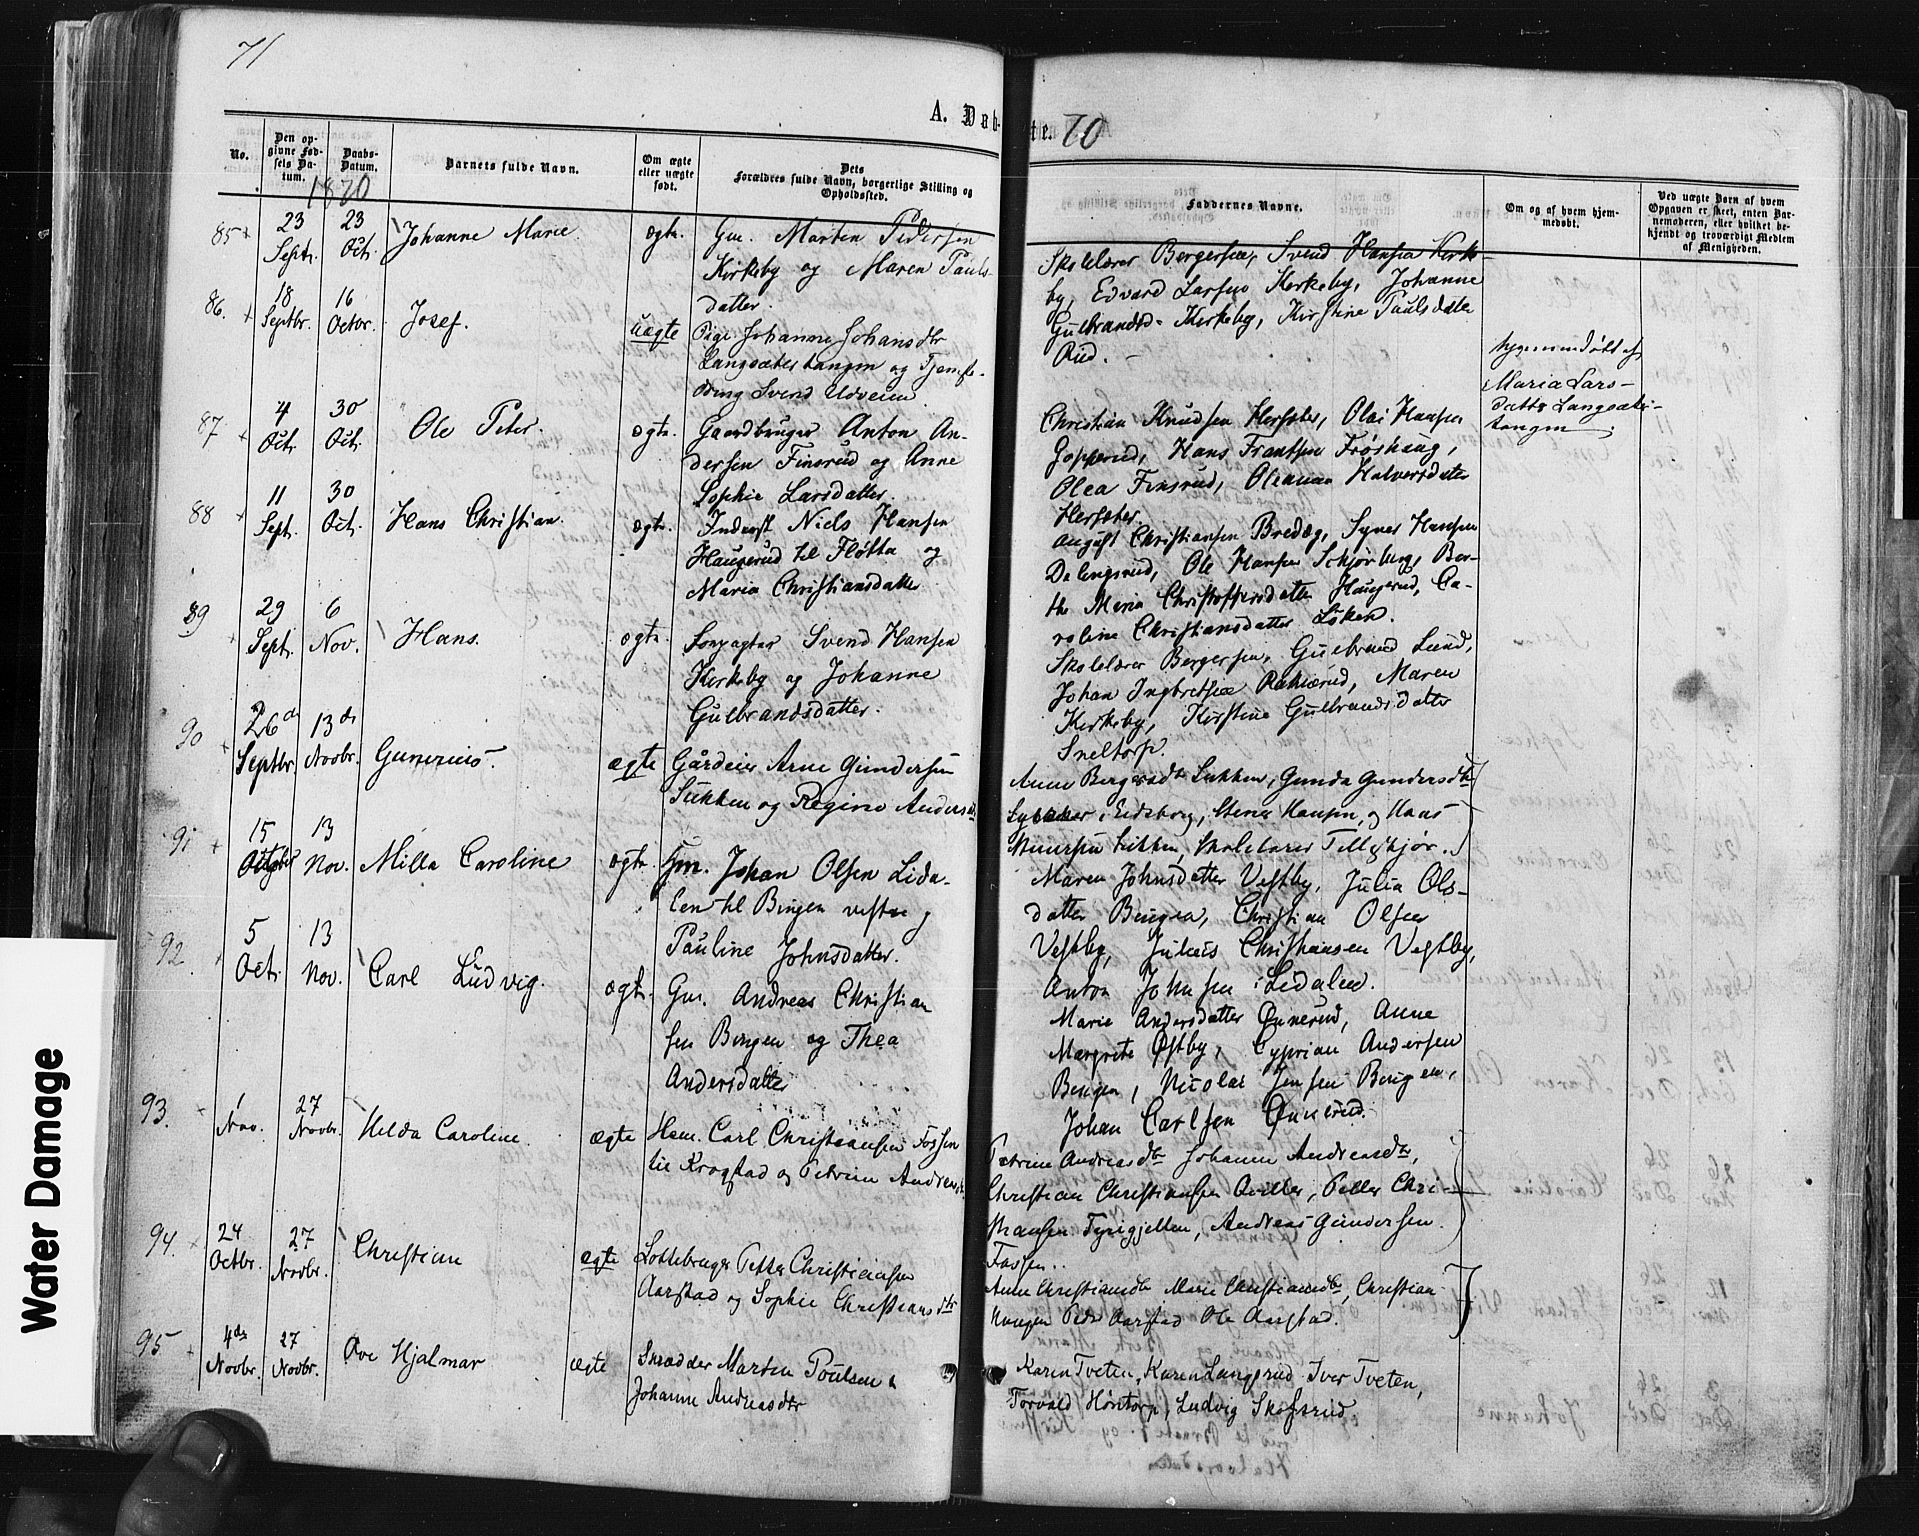 71
A. Daab-
te. 70
No.
Den op-
givne Fød-
sels Da-
tum.
Daabs-
Datum.
Barnets fulde Navn.
Om ægte
eller uægte
født.
Dets
Forældres fulde Navn, borgerlige Stilling og
Opholdssted.
Faddernes Navne.
Om og af hvem hjem-
medøbt.
Ved uægte Børn af hvem
Opgaven er skeet, enten Bar-
nemoderen, eller hvilket be-
kjendt og troværdigt Medlem
af Menigheden.
1870
85 23 Sept. 23 Oct. Johanne Marie ægte. Gm. Marten Pedersen
Kirkeby og Maren Pauls-
datter.
Skolelærer Bergersen, Svend Hansen Kirke-
by, Edvard Larsen Kirkeby, Johanne
Gulbrandsd. Kirkeby, Kirstine Paulsdatter
Rud.
86. 18 Septbr. 16 Octbr. Josef. uægte Pige Johanne Johansdtr
Langsæterstangen og
Svend Udveien
hjemmedøbt af
Maria Lars-
datter Langsæter-
tangen
87 4 Oct. 30 Oct. Ole Peter. ægte. Gaardbruger Anton An-
dersen Finsrud og Anne
Sophie Larsdatter.
Christian Knudsen Hersæter, Olai Hansen
Gopperud, Hans Frantsen Frøshaug,
Olea Finsrud, Oleanna Halvorsdatter
Hersæter.
88 11 Sept. 30 Oct. Hans Christian. ægte. Inderst Niels Hansen
Haugerud til Fløtta og
Maria Christiansdatter
August Christiansen Bredæg, Syver Hansen
Dalengsrud, Ole Hansen Schjørberg, Ber-
the Maria Christoffersdatter Haugerud, Ca-
roline Christiansdatter Løken.
89 29 Sept. 6 Nov. Hans. ægte. Svend Hansen
Kirkeby og Johanne
Gulbrandsdatter.
Skolelærer Bergersen, Gulbrand Lund,
Johan Ingbretsen, Maren
Kirkeby, Kirstine Gulbrandsdatter
Sneltorp.
90 26d Septbr. 13de Novbr. Gunerius. ægte Gårdeier Arne Gundersen
Sukken og Regine Andersd.
Anne Bergersdtr Sukken, Gunda Gundersdtr
i Eidsberg, Hansen, og Hans
Sukken, Skolelærer Tilleskjør.
91 15 Octbr 13 Nov. Milla Caroline ægte. Hm. Johan Olsen Lida-
len til Bingen vestre og
Pauline Johnsdatter.
Maren Johnsdatter Vestby, Julia Ols-
datter Bingen, Christian Olsen
Vestby, Julius Christiansen Vestby,
Anton Johnsen Lidalen.
92. 5 Oct. 13 Nov. Carl Ludvig. ægte. Gm. Andreas Christian
sen Bingen og Thea
Andersdatter
Marie Andersdatter Ønnerud, Anne
Margrete Østby, Cyprian Andersen
Bingen, Nicolai Jensen Bingen,
Johan Carlsen Ønnerud.
93. 1 Nov. 27 Novbr. Hilda Caroline. ægte Hem. Carl Christiansen Fossen
til Krogstad og Petrine Andreasd.
Petrine Andreasdtr Johanne Andreasdtr,
Christian Christiansen Qviller, Petter Chri-
stiansen Tyrigjelten, Andreas Gundersen
Fossen.
94. 24 Octbr. 27 Novbr. Christian ægte Lottebruger Petter Christiansen
Aarstad og Sophie Christiansdtr
Anne Christiansdtr Marie Christiansdtr, Christian
Haugen Peder Aarstad Ole Aarstad.
95 4de Novbr. 27 Novbr. Ove Hjalmar ægte Skrædder Marten Poulsen &
Johanne Andreasdtr
Karen Tveten, Karen Langsrud Iver Tveten,
Torvald Høntorp, Ludvig Skofsrud
Water Damage